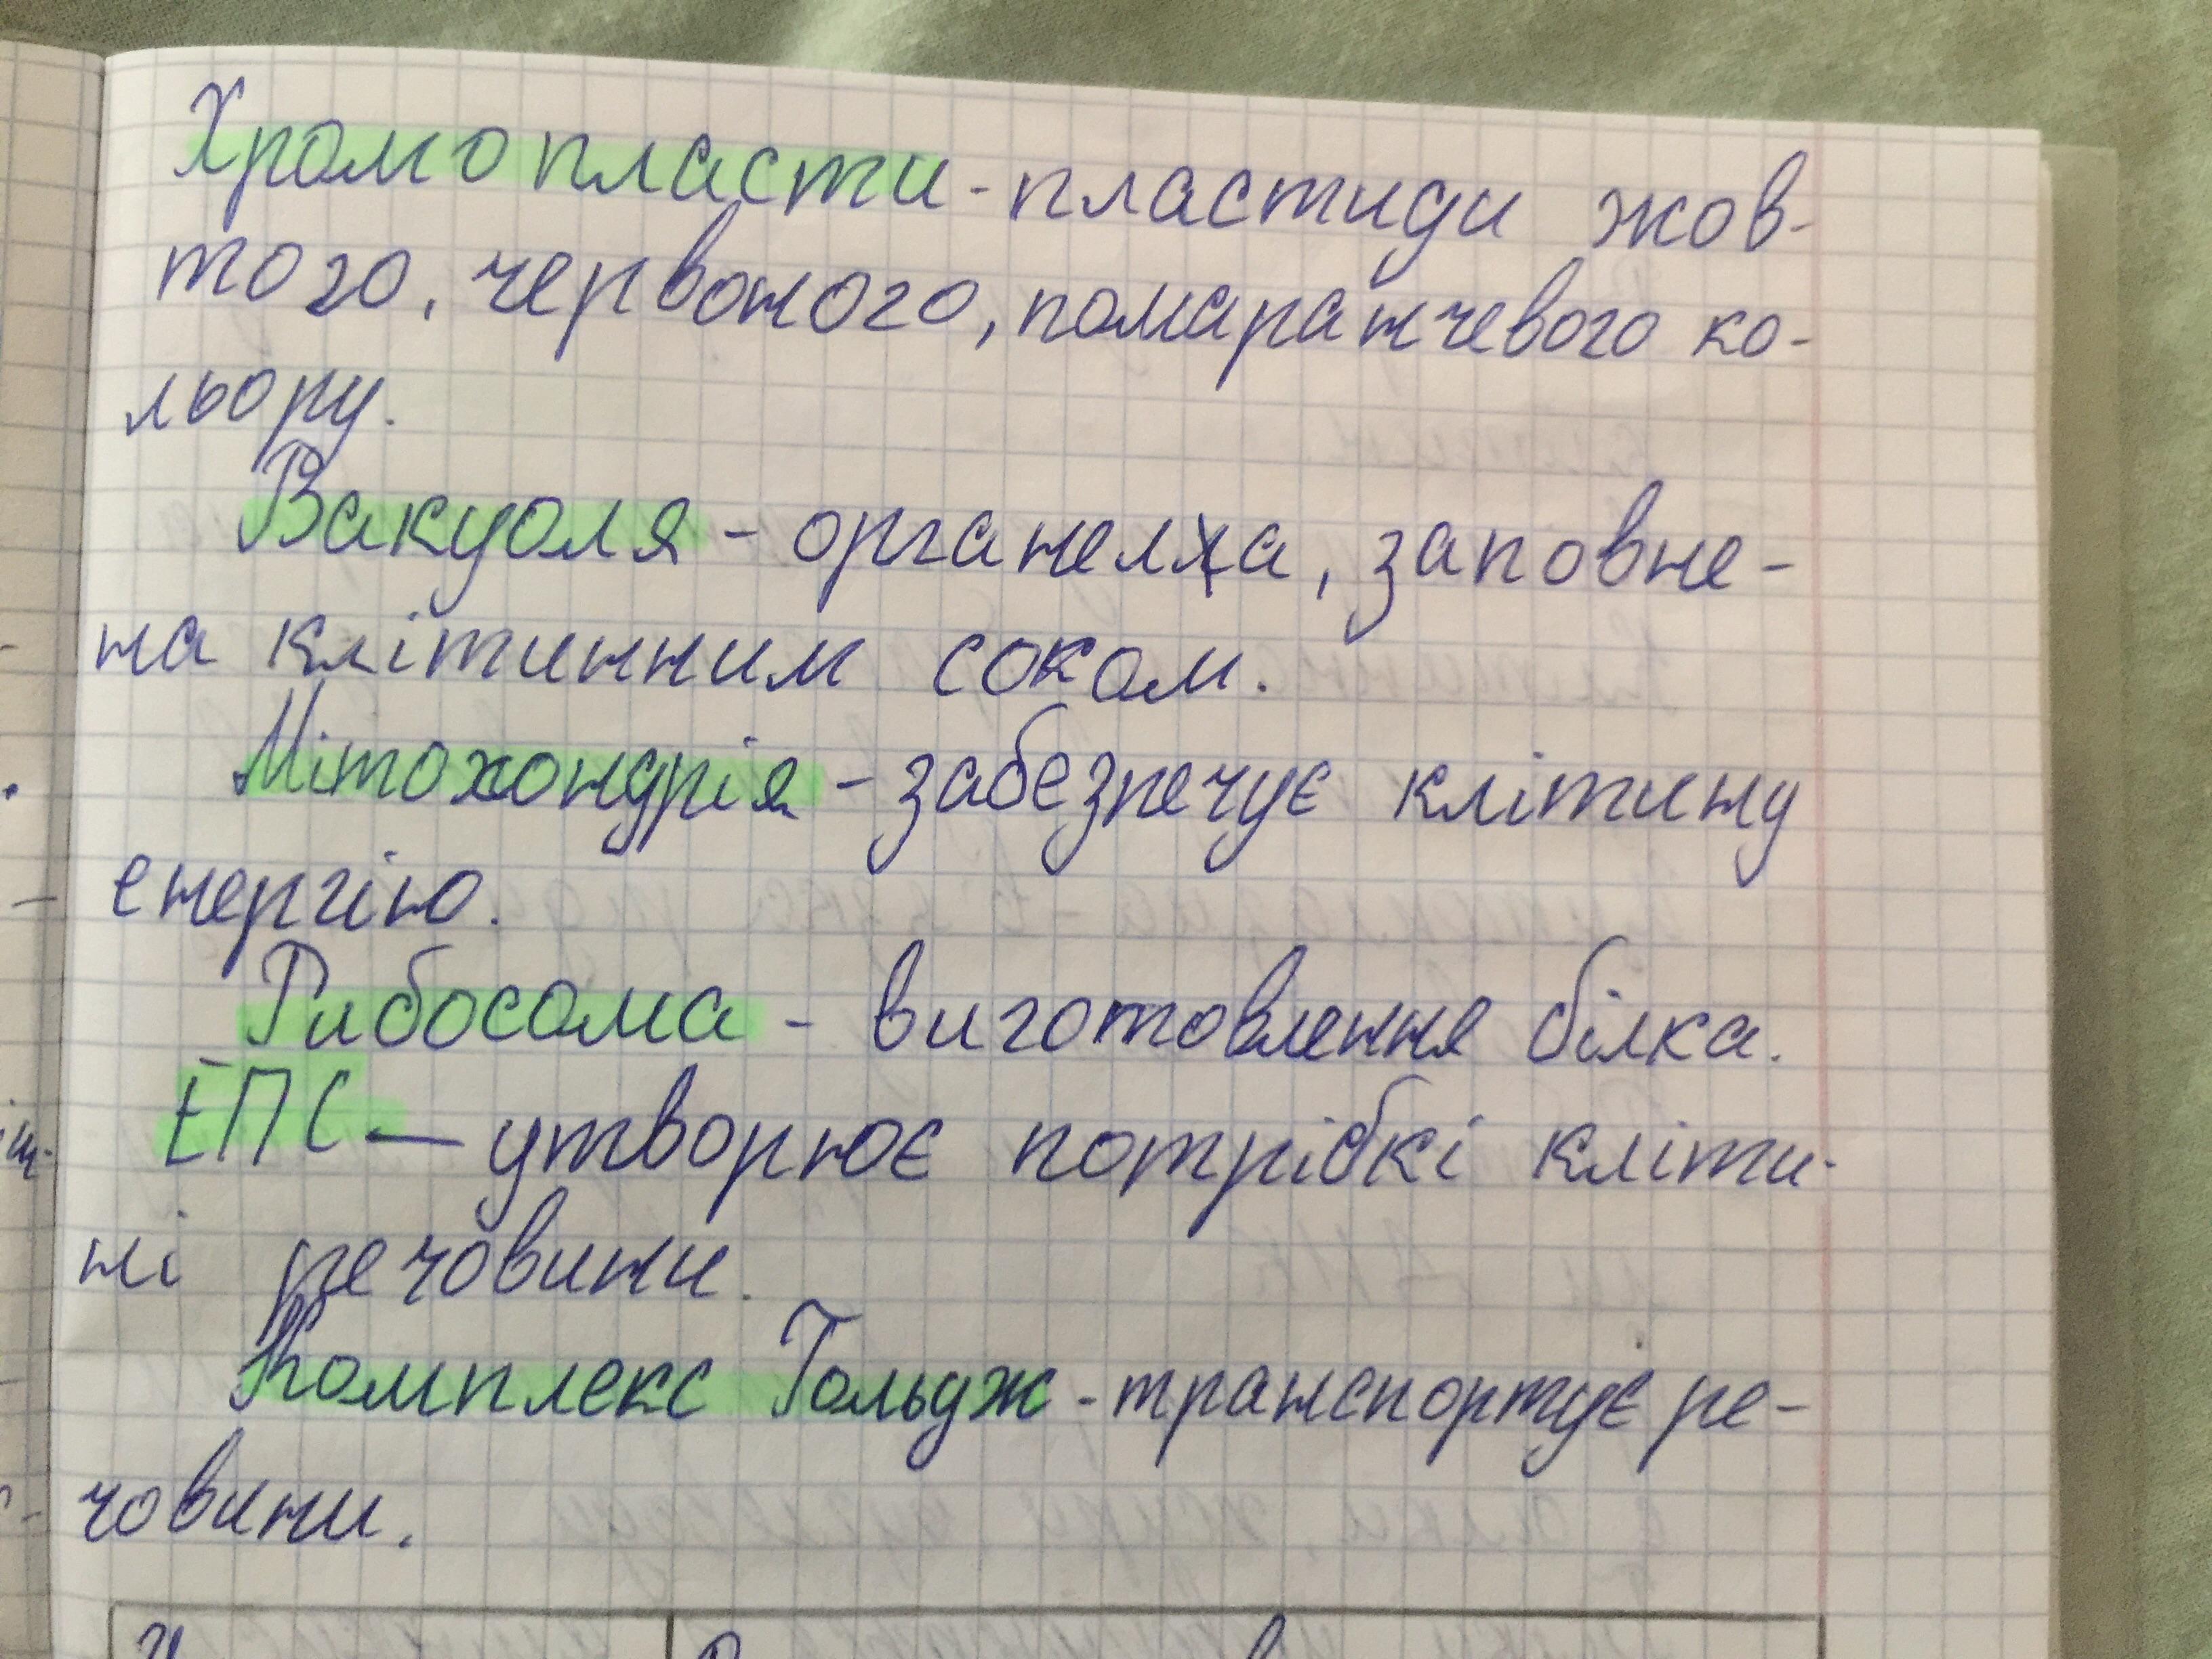 Хромопласти - пластиди жов-
того, червоного, помаранчевого ко-
льору.
Вакуоля - органела, заповне-
на клітинним соком.
Мітохондрія - забезпечує клітину
енергією.
Рибосома - виготовлення білка.
ЕПС — утворює потрібкі кліти-
ні речовини.
Комплекс Гольдж - транспортує ре-
човини.